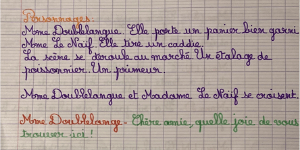 Personnages :
Mme Doublelangue. Elle porte un panier bien garni.
Mme Le Naïf. Elle tire un caddie.
La scène se déroule au marché. Un étalage de
poissonnier. Un primeur.
Mme Doublelangue et Madame Le Naïf se croisent.
Mme Doublelange - Chère amie, quelle joie de vous
trouver ici !